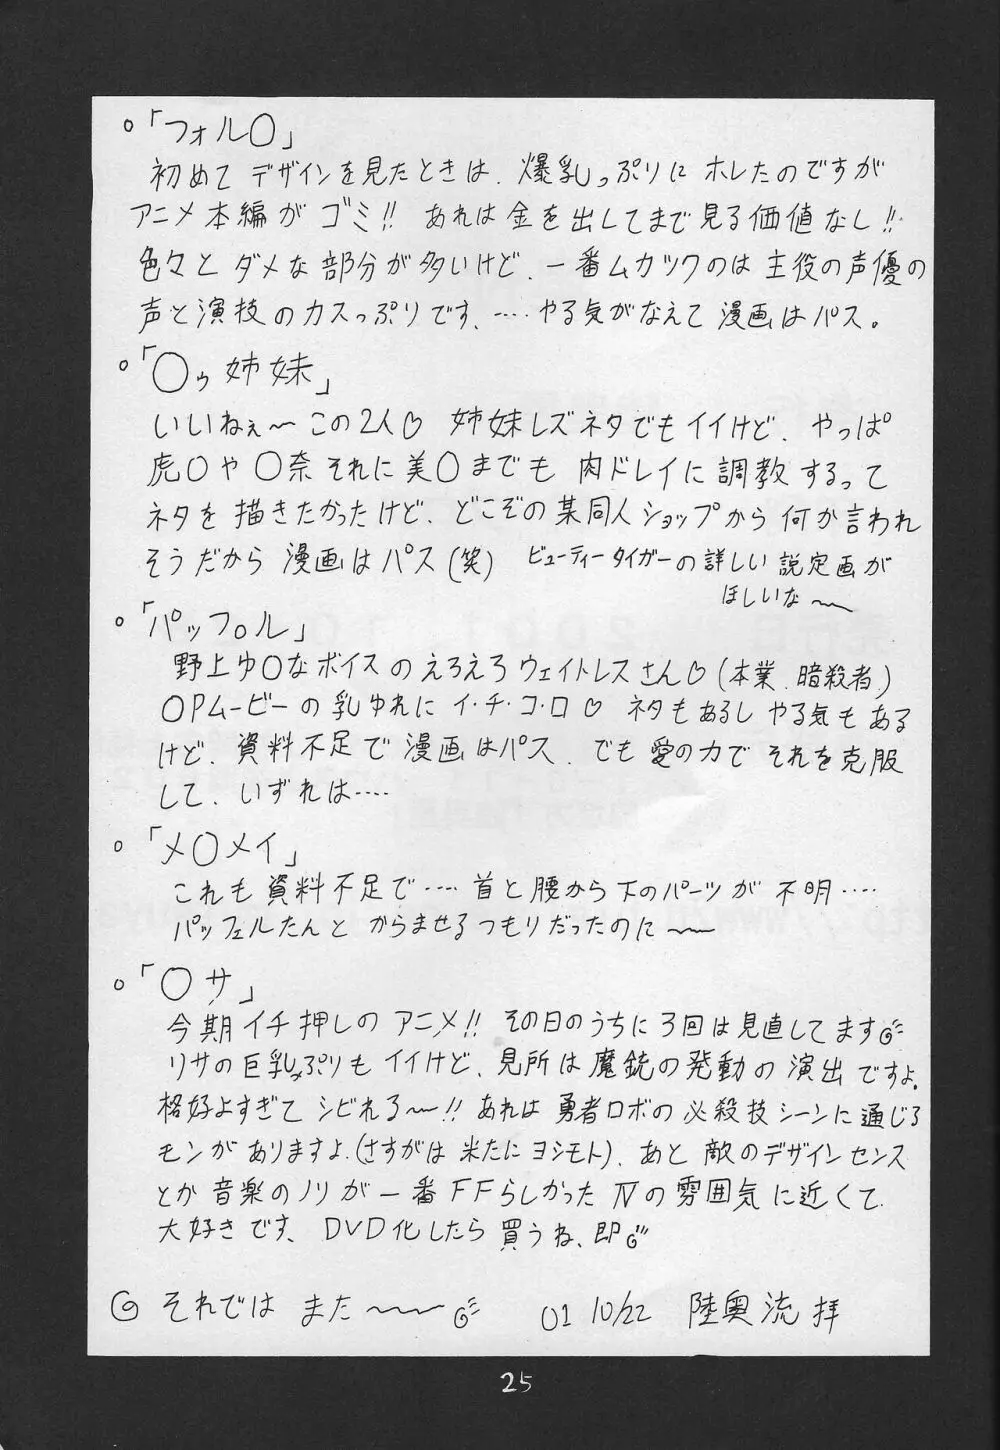 。「フォル〇」
初めてデザインを見たときは、爆乳っぷりにホレたのですが
アニメ本編がゴミ!! あれは金を出してまで見る価値なし!!
色々とダメな部分が多いけど、一番ムカツクのは主役の声優の
声と演技のカスっぷりです、‥‥やる気がなえて漫画はパス。
。「〇ゥ姉妹」
いいねぇ〜この2人♡ 姉妹レズネタでもイイけど、やっぱ
虎〇や〇奈それに美〇までも肉ドレイに調教するって
ネタを描きたかったけど、どこぞの某同人ショップから何か言われ
そうだから漫画はパス(笑) ビューティータイガーの詳しい設定画が
ほしいな〜
。「パッフ〇ル」
野上ゆ〇なボイスのえろえろウェイトレスさん♡(本業、暗殺者)
OPムービーの乳ゆれにイ・チ・コ・ロ♡ ネタもあるしやる気もある
けど、資料不足で漫画はパス、でも愛の力でそれを克服
して、いずれは‥‥
。「メ〇メイ」
これも資料不足で‥‥首と腰から下のパーツが不明‥‥
パッフェルたんとからませるつもりだったのに〜
。「〇サ」
今期イチ押しのアニメ!! その日のうちに3回は見直してます
リサの巨乳っぷりもイイけど、見所は魔銃の発動の演出ですよ。
格好よすぎてシビれる〜!! あれは勇者ロボの必殺技シーンに通じる
モンがありますよ.(さすがは米たにヨシモト)、あと敵のデザインセンス
とか音楽のノリが一番FFらしかったⅣの雰囲気に近くて
大好きです、DVD化したら買うね、即
それではまた〜 01 10/22 陸奥流拝
25